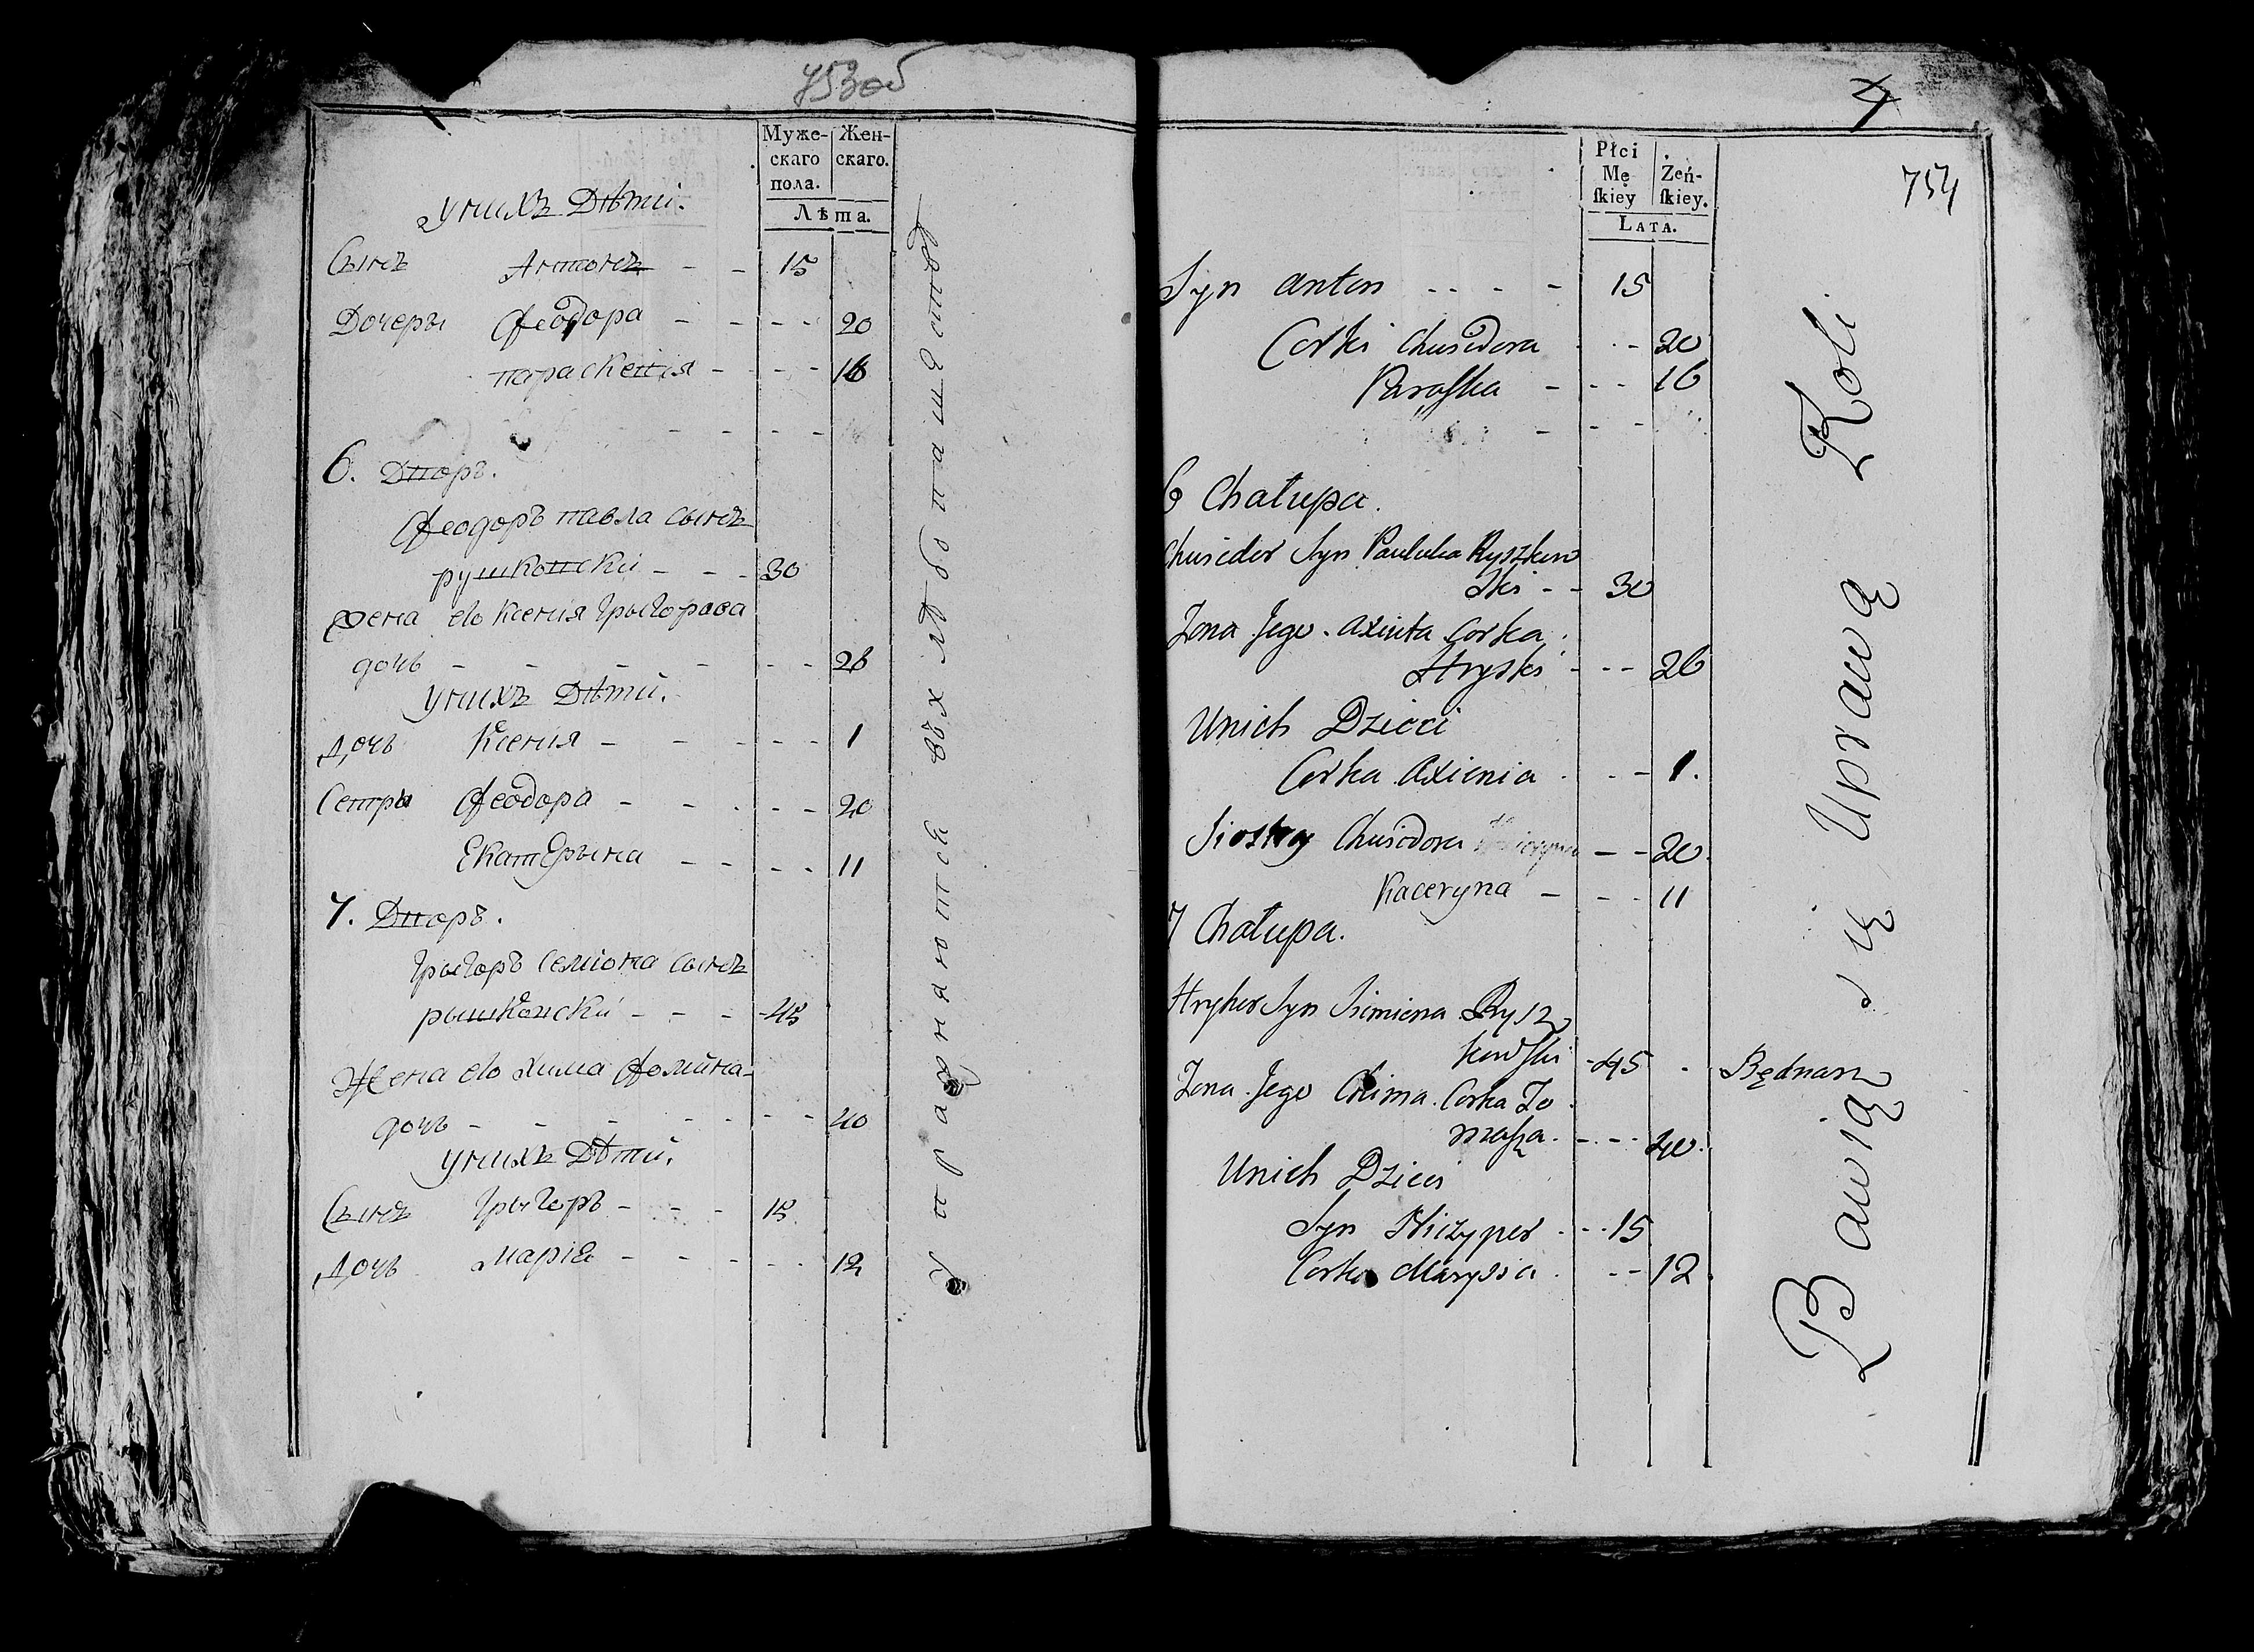 753об
Муже-
скаго
пола.
Жен-
скаго.
Лѣта.
У нихъ Дѣти.
Сынъ Антонъ - - 15
Дочеры Феодора - - - - 20
параскевия - - - - 16
6. Дворъ.
Феодоръ павла сынъ
рушковски - - - 30
жена его Ксения Грыгорова
дочь - - - - - - 26
У нихъ Дѣти.
Дочь Ксения - - - - - 1
Сестры Феодора - - - - - 20
Екатерына - - - - 11
7. Дворъ.
Грыгоръ Семиона сынъ
рышковски - - - - 45
Жена его Хима Фомина
дочь - - - - - - 40
У нихъ Дѣти.
Сынъ Грыгоръ - - - 15
Дочь Мария - - - - - - 12
Упражняются въ хлѣбопашествѣ
4
754
Płci
Mę
skiey
Żeń-
skiey.
LATA.
Syn Anton - - - - 15
Corki Chwiedora - - 20
Paraska - - - 16
6 Chałupa.
Chwiedor Syn Pauluka Ryszkow
Ski - - 30
Zona Jego Axiuta Corka
Hryski - - - 26
Unich Dzieci
Corka Axienia - - 1.
Siostry Chwiedora - - 20
Kaceryna - - - 11
7 Chałupa.
Hryhor Syn Siemiona Rysz
kowski - 45 Będnarz
Zona Jego Chima Corka To
masza - - - 40.
Unich Dzieci
Syn Niczyper - - - 15
Corka Marysia - - 12.
Bawią się Uprawą Roli